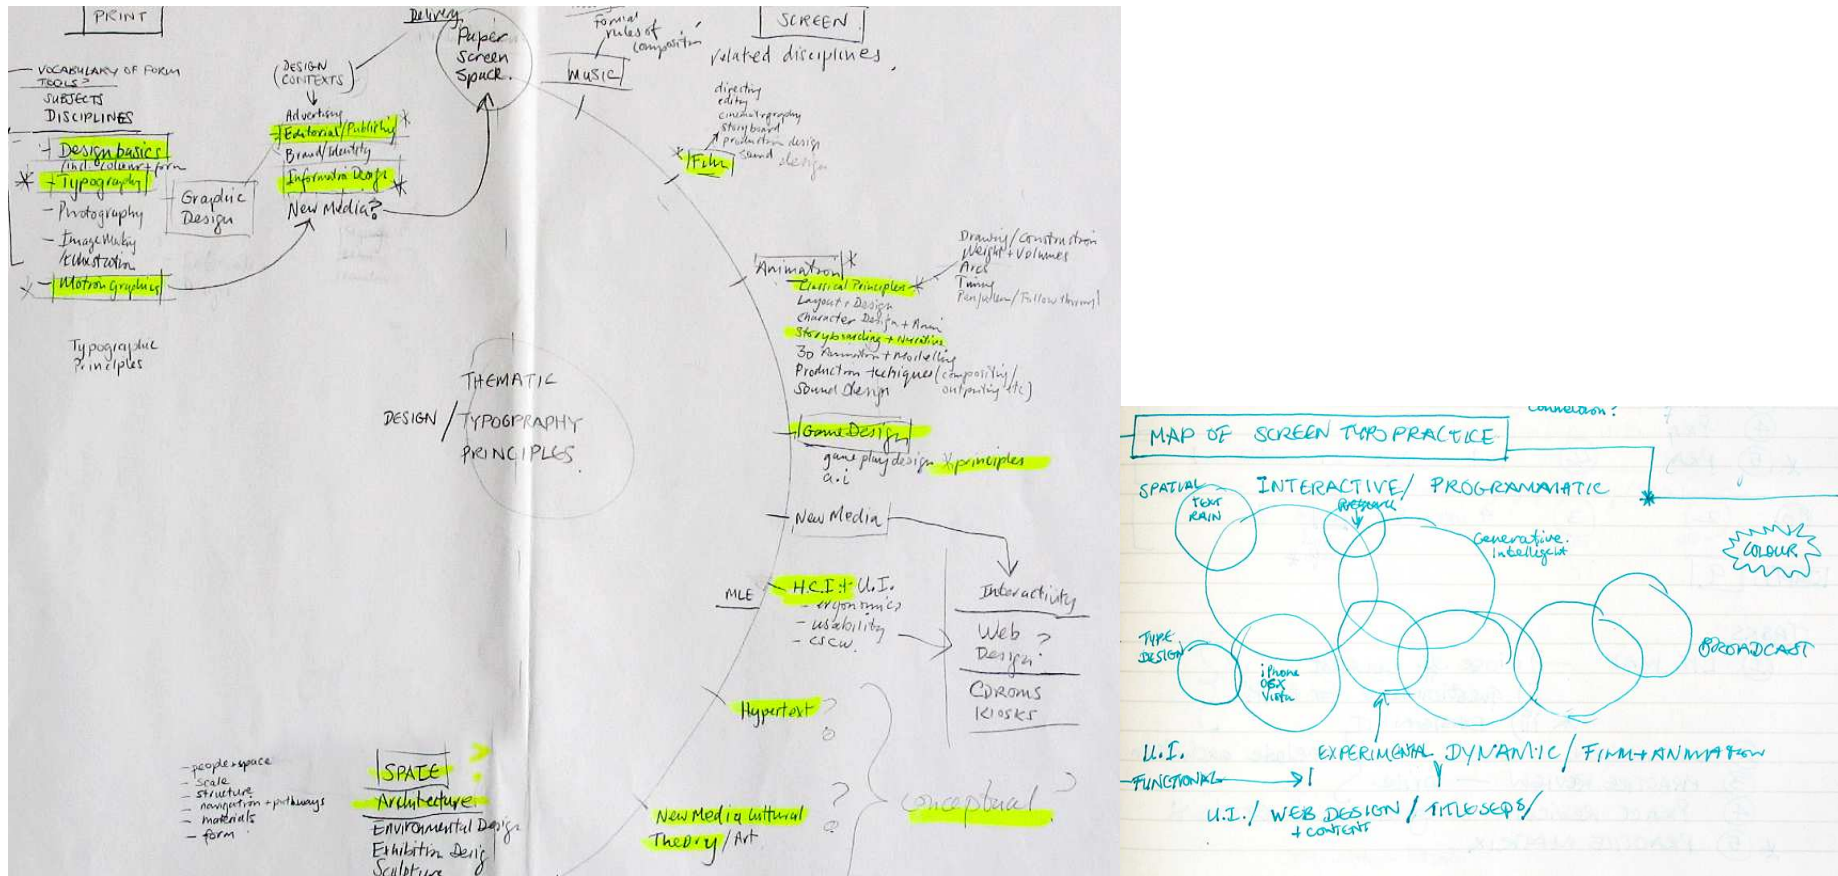 PRINT
VOCABULARY OF FORM
TOOLS?
SUBJECTS
DISCIPLINES
Design basics
/incl. colour + form
Typography
Photography
Image Making
Motion Graphics
Typographic
Principles
Graphic
Design
(DESIGN
CONTEXTS)
Advertising
Editorial/Publishing
Brand/Identity
Information Design
New Media?
Delivery
Paper
Screen
Space.
Formal
rules of
MUSIC
SCREEN
related disciplines
directing
editing
cinematography
storyboard
production design
sound design
Film
Animation
Classical Principles
Layout + Design
Character Design + Anim
Storyboarding + Narrative
3D Animation + Modelling
Production techiques (compositing/
outputting etc)
Sound Design
Drawing/Construction
Weight + Volumes
Arcs
Timing
THEMATIC
DESIGN / TYPOGRPAHY
PRINCIPLES.
Game Design
game play design principles
a.i
New Media
MLE
H.C.I + U.I.
- ergonomics
- usability
- CSCW.
Interactivity
Web ?
Design
CDROMS
KIOSKS
Hypertext ?
New Media Cultural ?
Theory/Art
Conceptual ?
- people + space
- scale
- structure
- navigation + pathways
- materials
- form
SPACE
Architecture
Environmental Design
Exhibition Design
Sculpture
connection?
MAP OF SCREEN TYPO PRACTICE
SPATIAL
INTERACTIVE/ PROGRAMMATIC
TEXT
RAIN
Generative.
Intelligent
COLOUR
TYPE
DESIGN
iPhone
OSX
Vista
BROADCAST
U.I.
EXPERIMENTAL DYNAMIC / FILM + ANIMATION
FUNCTIONAL
U.I. / WEB DESIGN / TITLE SEQS /
+ CONTENT